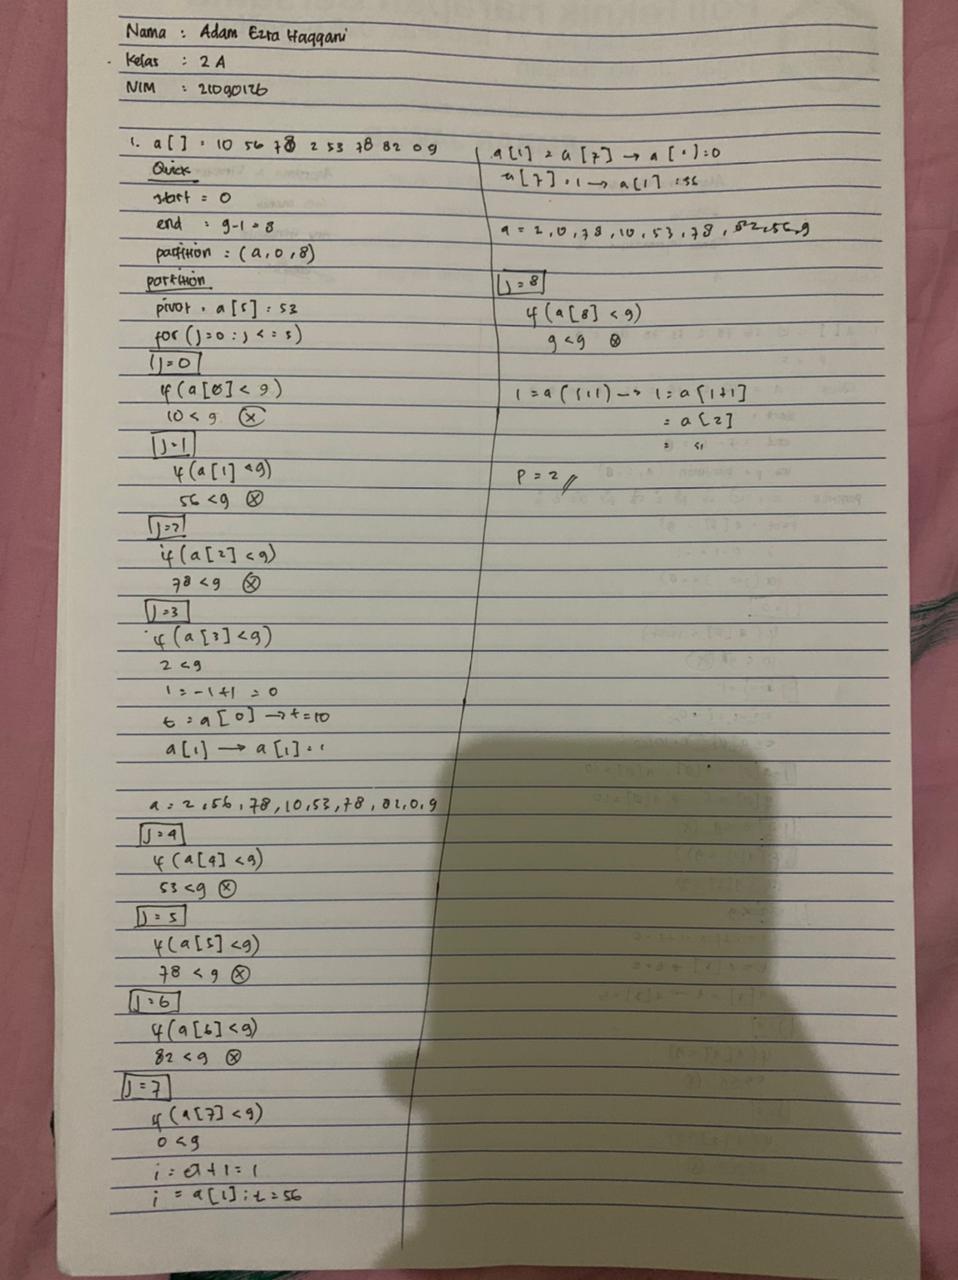 Nama : Adam Ezra Haqqani
Kelas : 2 A
NIM : 21090126
1. a[] = 10 56 78 2 53 78 82 0 9
Quick
start = 0
end : 9-1 = 8
partition : (a, 0, 8)
partition
pivot = a[5] : 53
for (j=0 : j <= 5)
j=0
if (a[0] < 9)
10 < 9 ⊗
j=1
if (a[1] < 9)
56 < 9 ⊗
j=2
if (a[2] < 9)
78 < 9 ⊗
j=3
if (a[3] < 9)
2 < 9
i = -1+1 = 0
t = a[0] → t=10
a[1] → a[1] =
a = 2, 56, 78, 10, 53, 78, 82, 0, 9
j=4
if (a[4] < 9)
53 < 9 ⊗
j=5
if (a[5] < 9)
78 < 9 ⊗
j=6
if (a[6] < 9)
82 < 9 ⊗
j=7
if (a[7] < 9)
0 < 9
i = 0+1 = 1
i = a[1] ; t = 56
a[1] = a[7] → a[1] = 0
a[7] = 1 → a[1] = 56
a = 2, 0, 78, 10, 53, 78, 82, 56, 9
j=8
if (a[8] < 9)
9 < 9 ⊗
i = a(i+1) → i = a[1+1]
= a[2]
=
P = 2 //